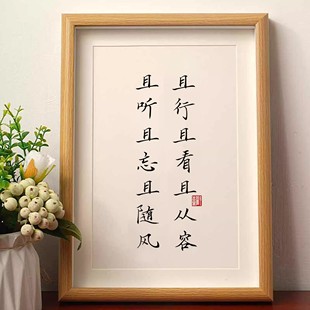 且行且看且从容
且听且忘且随风